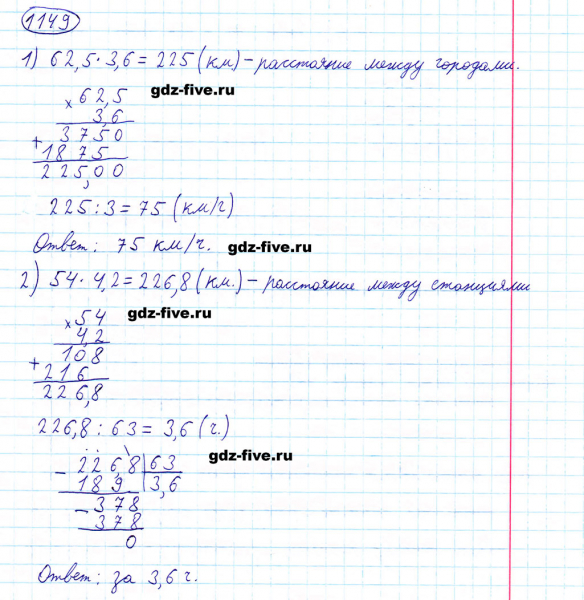 1149
1) 62,5 · 3,6 = 225 (км) – расстояние между городами.
gdz-five.ru
× 62,5
3,6
+ 3750
1875
225,00
225 : 3 = 75 (км/г)
Ответ: 75 км/ч.
gdz-five.ru
2) 54 · 4,2 = 226,8 (км.) – расстояние между станциями
gdz-five.ru
× 54
4,2
+ 108
216
226,8
226,8 : 63 = 3,6 (ч.)
gdz-five.ru
- 226,8 63
189 3,6
- 378
378
0
Ответ: за 3,6 ч.